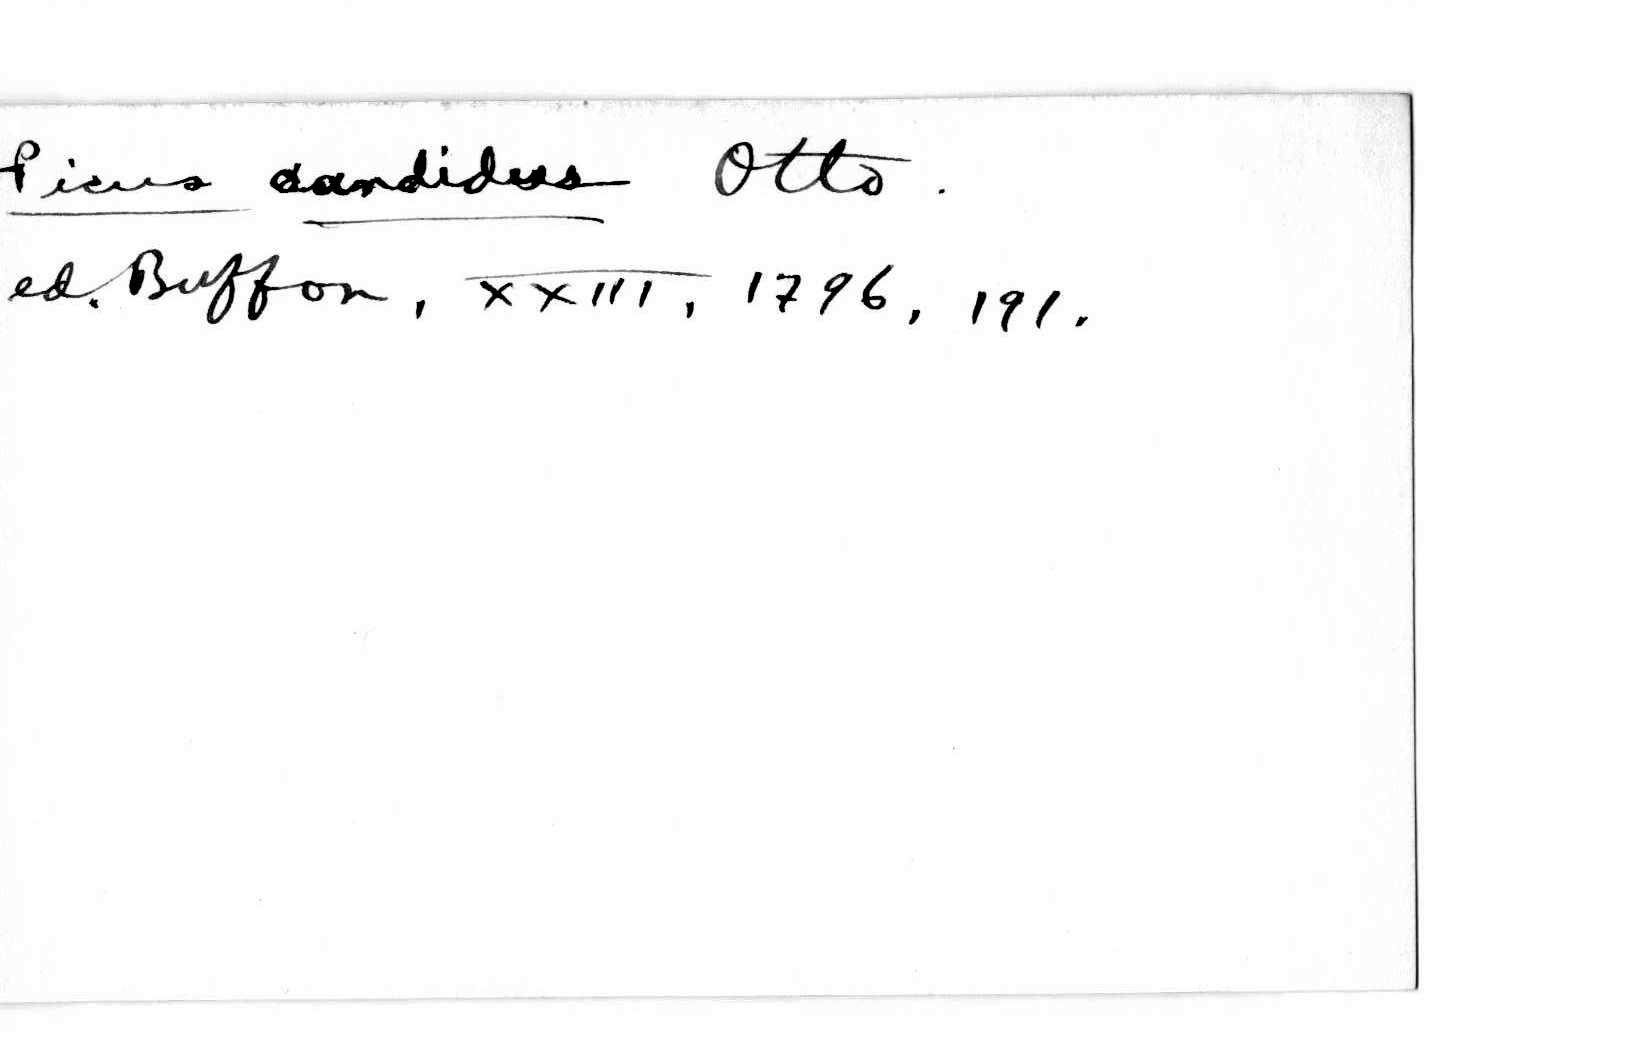 Picus candidus Otto.
ed. Buffon, XXIII, 1796, 191.